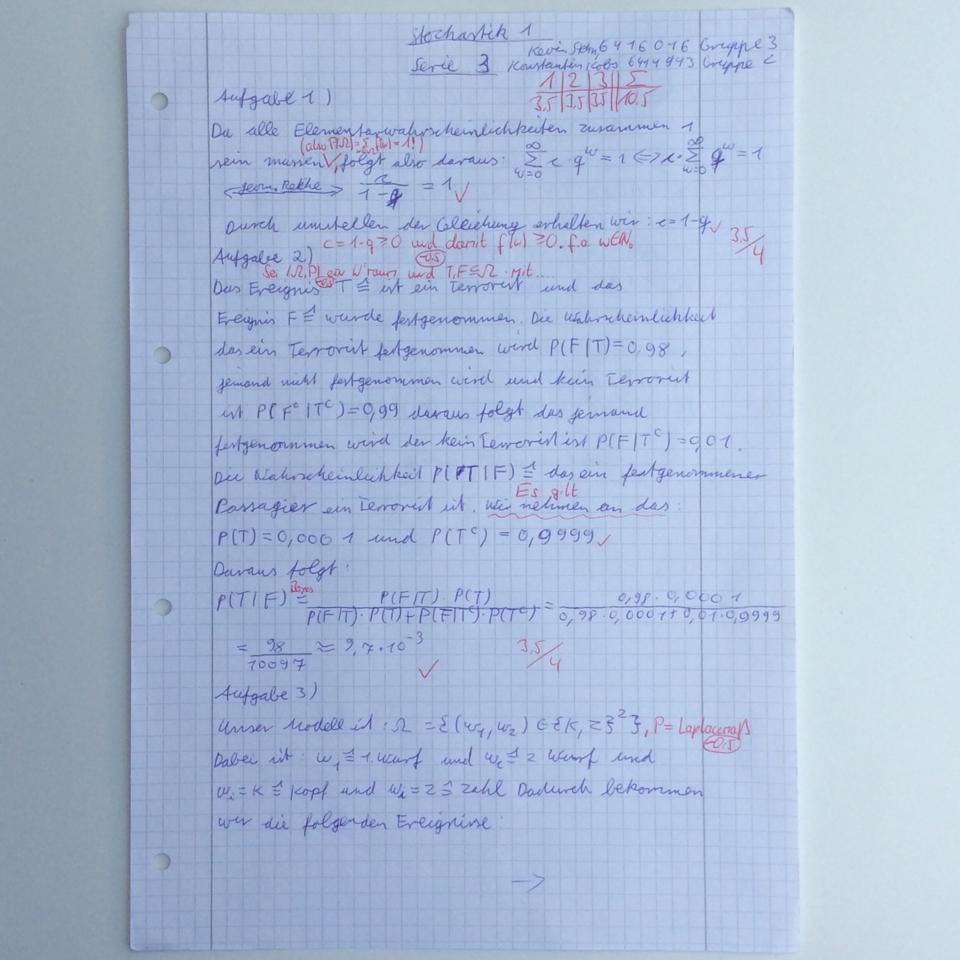 Stochastik 1
Serie 3
Kevin 6416016 Gruppe 3
Konstantin Kobs 6414943 Gruppe
1 | 2 | 3 || Σ
3,5 | 3,5 | 3,5 || 10,5
Aufgabe 1)
Da alle Elementarwahrscheinlichkeiten zusammen 1
(also P(Ω)=Σ f(ω)=1!)
sein müssen, folgt also daraus: ∞Σω=0 c · q^ω = 1 <=> c · ∞Σω=0 q^ω = 1
<geom. Reihe> c/(1-q) = 1 ✓
Durch umstellen der Gleichung erhalten wir: c = 1-q ✓
c = 1-q ≥ 0 und damit f(ω) ≥ 0. f.a ω∈ℕ₀ 3,5/4
-0,5
Aufgabe 2)
Sei (Ω,P) ein W'raum und T,F ⊆ Ω mit....
-0,5
Das Ereignis T ≙ ist ein Terrorist und das
Ereignis F ≙ wurde festgenommen. Die Wahrscheinlichkeit
das ein Terrorist festgenommen wird P(F|T)=0,98,
jemand nicht festgenommen wird und kein Terrorist
ist P(Fᶜ|Tᶜ)=0,99 daraus folgt das jemand
festgenommen wird der kein Terrorist ist P(F|Tᶜ)=0,01.
Die Wahrscheinlichkeit P(T|F) ≙ das ein festgenommener
Es gilt
Passagier ein Terrorist ist. Wir nehmen an das:
P(T)=0,0001 und P(Tᶜ) = 0,9999 ✓
Daraus folgt:
P(T|F) Bayes= P(F|T)·P(T) / (P(F|T)·P(T)+P(F|Tᶜ)·P(Tᶜ)) = 0,98·0,0001 / (0,98·0,0001+0,01·0,9999)
= 98/10097 ≈ 9,7·10⁻³ ✓ 3,5/4
Aufgabe 3)
Unser Modell ist: Ω = {(ω₁,ω₂) ∈ {K,Z}²}, P = Laplacemaß
-0,5
Dabei ist: ω₁ ≙ 1. Wurf und ω₂ ≙ 2 Wurf und
ωᵢ = K ≙ Kopf und ωᵢ = Z ≙ Zahl Dadurch bekommen
wir die folgenden Ereignisse:
→